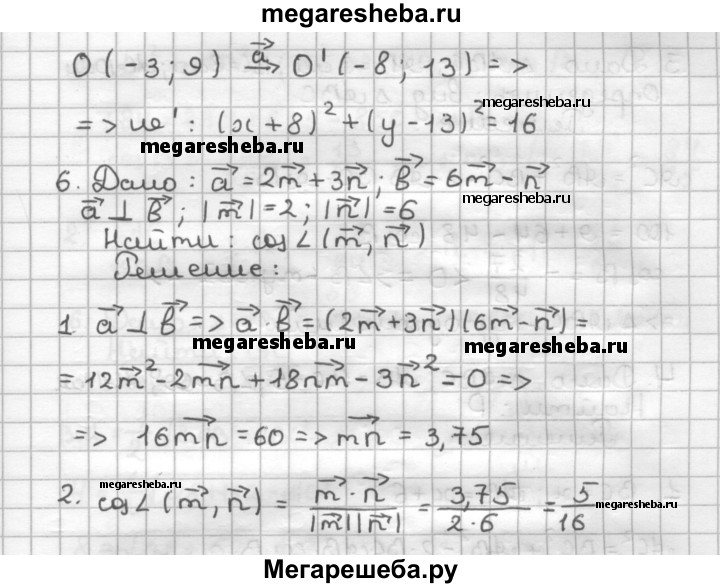 megaresheba.ru
O(-3; 9) →a⃗ O'(-8; 13) =>
megaresheba.ru
=> ω': (x+8)² + (y-13)² = 16
megaresheba.ru
6. Дано: a⃗ = 2m⃗ + 3n⃗; b⃗ = 6m⃗ - n⃗
a⃗ ⊥ b⃗; |m⃗| = 2; |n⃗| = 6
Найти: cos∠(m⃗, n⃗)
Решение:
1. a⃗ ⊥ b⃗ => a⃗·b⃗ = (2m⃗ + 3n⃗)(6m⃗ - n⃗) =
megaresheba.ru megaresheba.ru
= 12m⃗² - 2m⃗n⃗ + 18n⃗m⃗ - 3n⃗² = 0 =>
=> 16m⃗n⃗ = 60 => m⃗n⃗ = 3,75
megaresheba.ru
2. cos∠(m⃗, n⃗) = m⃗·n⃗ / |m⃗||n⃗| = 3,75 / 2·6 = 5/16
megaresheba.ru
Мегарешеба.ру